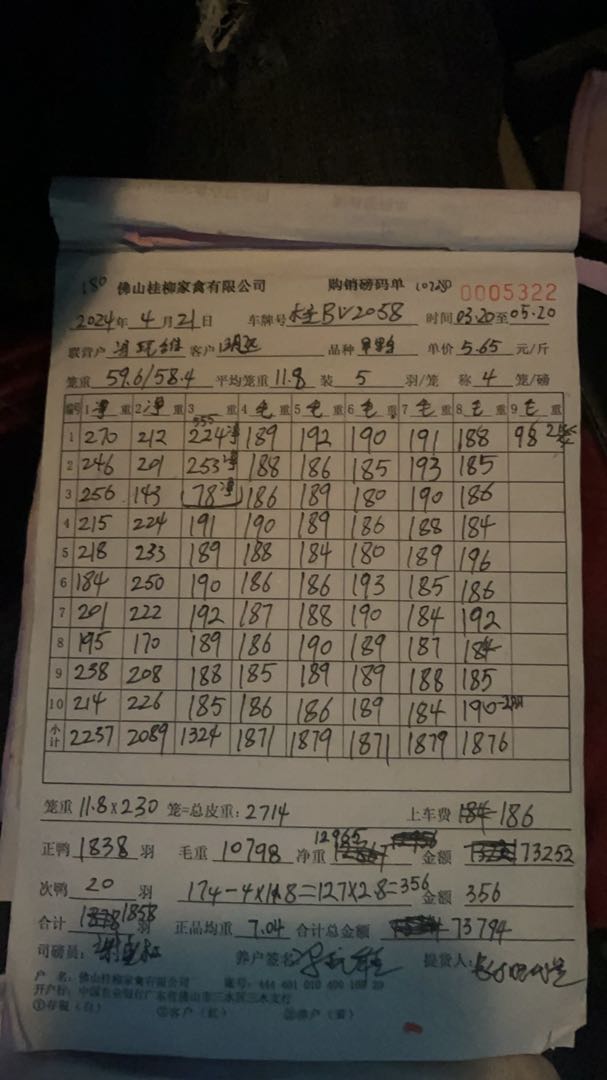 180 佛山桂柳家禽有限公司 购销磅码单 107280 0005322
2024年 4 月 21 日 车牌号 桂BV2058 时间 03.20 至 05.20
联营户 客户 品种 单价 5.65 元/斤
笼重 59.6/58.4 平均笼重 11.8 装 5 羽/笼 称 4 笼/磅
编号 1 净 重 2 净 重 3 重 4 毛 重 5 毛 重 6 毛 重 7 毛 重 8 毛 重 9 毛 重
555
1 270 212 224净 189 192 190 191 188 98
2 246 201 253净 188 186 185 193 185
3 256 143 78净 186 189 180 190 186
4 215 224 191 190 189 186 188 184
5 218 233 189 188 184 180 189 196
6 184 250 190 186 186 193 185 186
7 201 222 192 187 188 190 184 192
8 195 170 189 186 190 189 187 184
9 238 208 188 185 189 189 188 185
10 214 226 185 186 186 189 184 190
小计 2237 2089 1324 1871 1879 1871 1879 1876
笼重 11.8×230 笼=总皮重: 2714 上车费 186
正鸭 1838 羽 毛重 10798 净重 12965 金额 73252
次鸭 20 羽 174-4×11.8=127×2.8=356 金额 356
合计 1858 羽 正品均重 7.04 合计总金额 73794
司磅员: 养户签名 提货人:
户 名: 佛山桂柳家禽有限公司 账号:
开户行: 中国农业银行广东省佛山市三水区三水支行
①存根(白) ②客户(红) ③养户(黄)